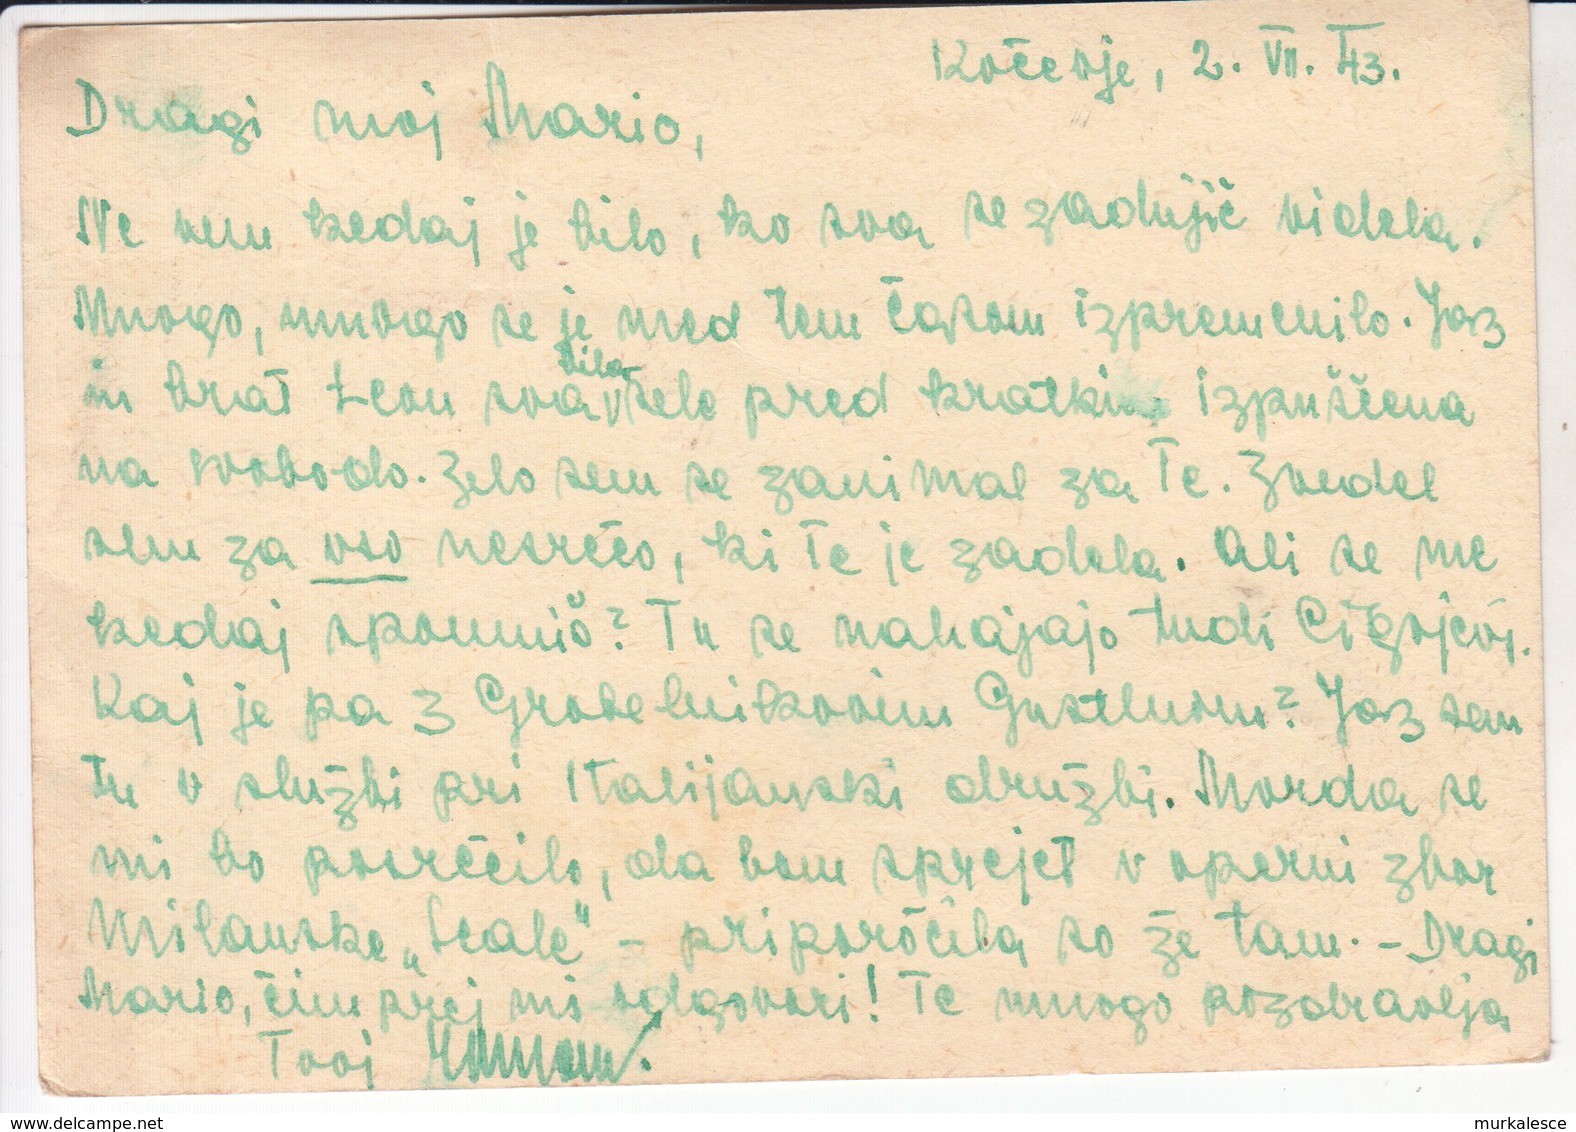 Kočevje, 2. VII. 43.
Dragi moj Mario,
Ne vem kedaj je bilo, ko sva se zadnjič videla.
Mnogo, mnogo se je med tem časom izpremenilo. Jaz
in brat Leon sva bila šele pred kratkim izpuščena
na svobodo. Zelo sem se zanimal za Te. Zvedel
sem za vso nesrečo, ki Te je zadela. Ali se me
kedaj spomniš? Tu se nahajajo tudi
Kaj je pa z Grobelnikovim Gustlnom? Jaz sem
tu v službi pri Italijanski družbi. Morda se
mi bo posrečilo, da bom sprejet v operni zbor
Milanske „Scale" – priporočila so že tam. – Dragi
Mario, čim prej mi odgovori! Te mnogo pozdravlja
Tvoj
murkalesce
delcampe.net